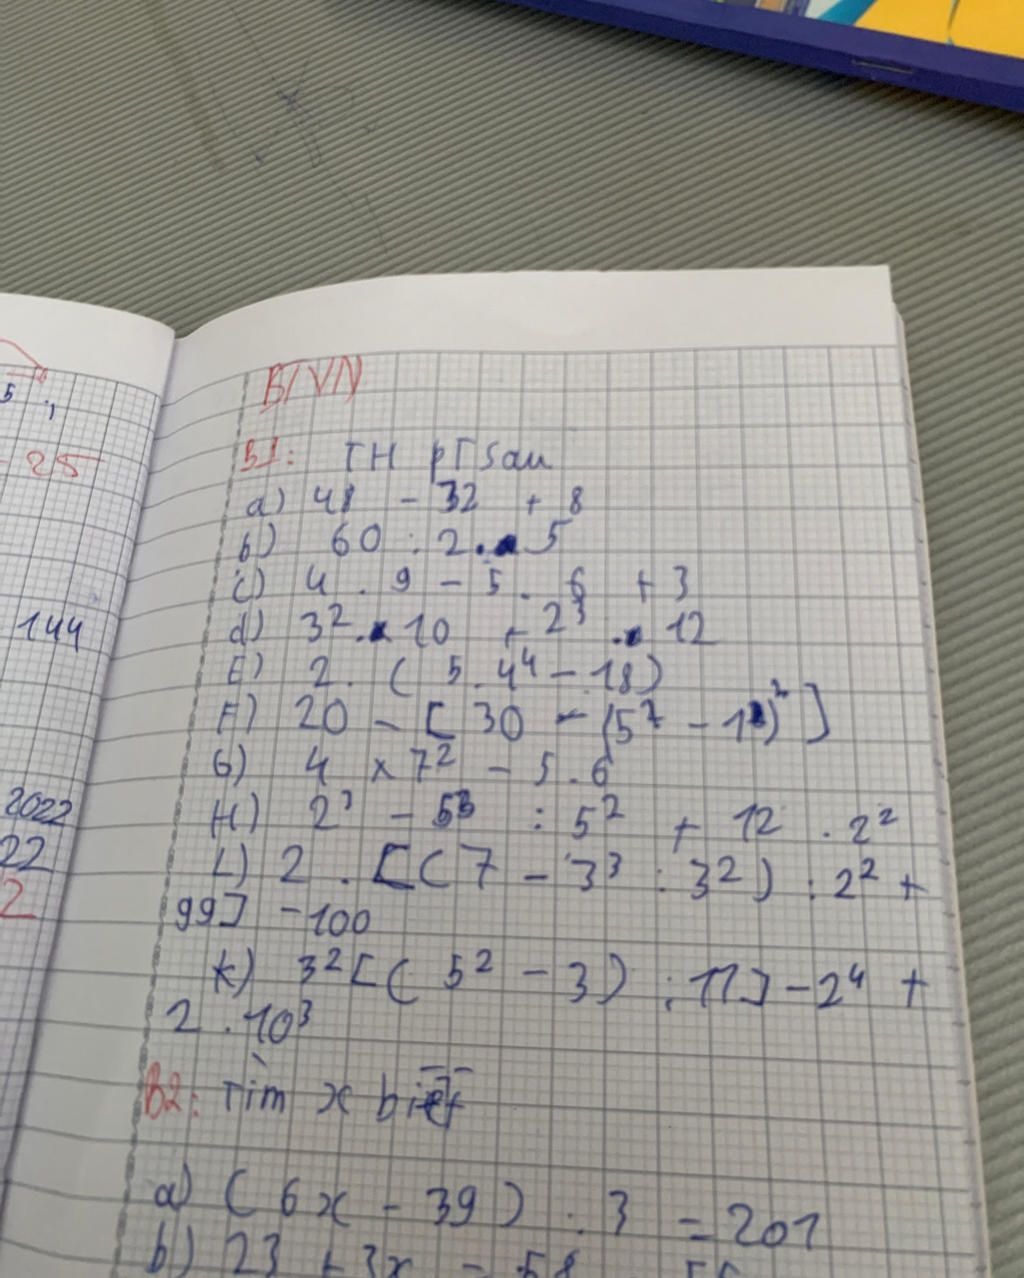 5
- 25
144
2022
22
2
BTVN
B1: TH PT Sau
a) 48 - 32 + 8
b) 60 : 2 . 5
c) 4 . 9 - 5 . 6 + 3
d) 3² . 10 + 2³ . 12
E) 2 . ( 5 . 4⁴ - 18)
F) 20 - [ 30 - (5² - 1)² ]
G) 4 x 7² - 5 . 6
H) 2³ - 5³ : 5² + 12 . 2²
L) 2 . [( 7 - 3³ : 3²) : 2² +
99] - 100
K) 3² [( 5² - 3) : 11] - 2⁴ +
2 . 10³
B2: Tìm x biết
a) ( 6x - 39 ) : 3 = 201
b) 23 + 3x